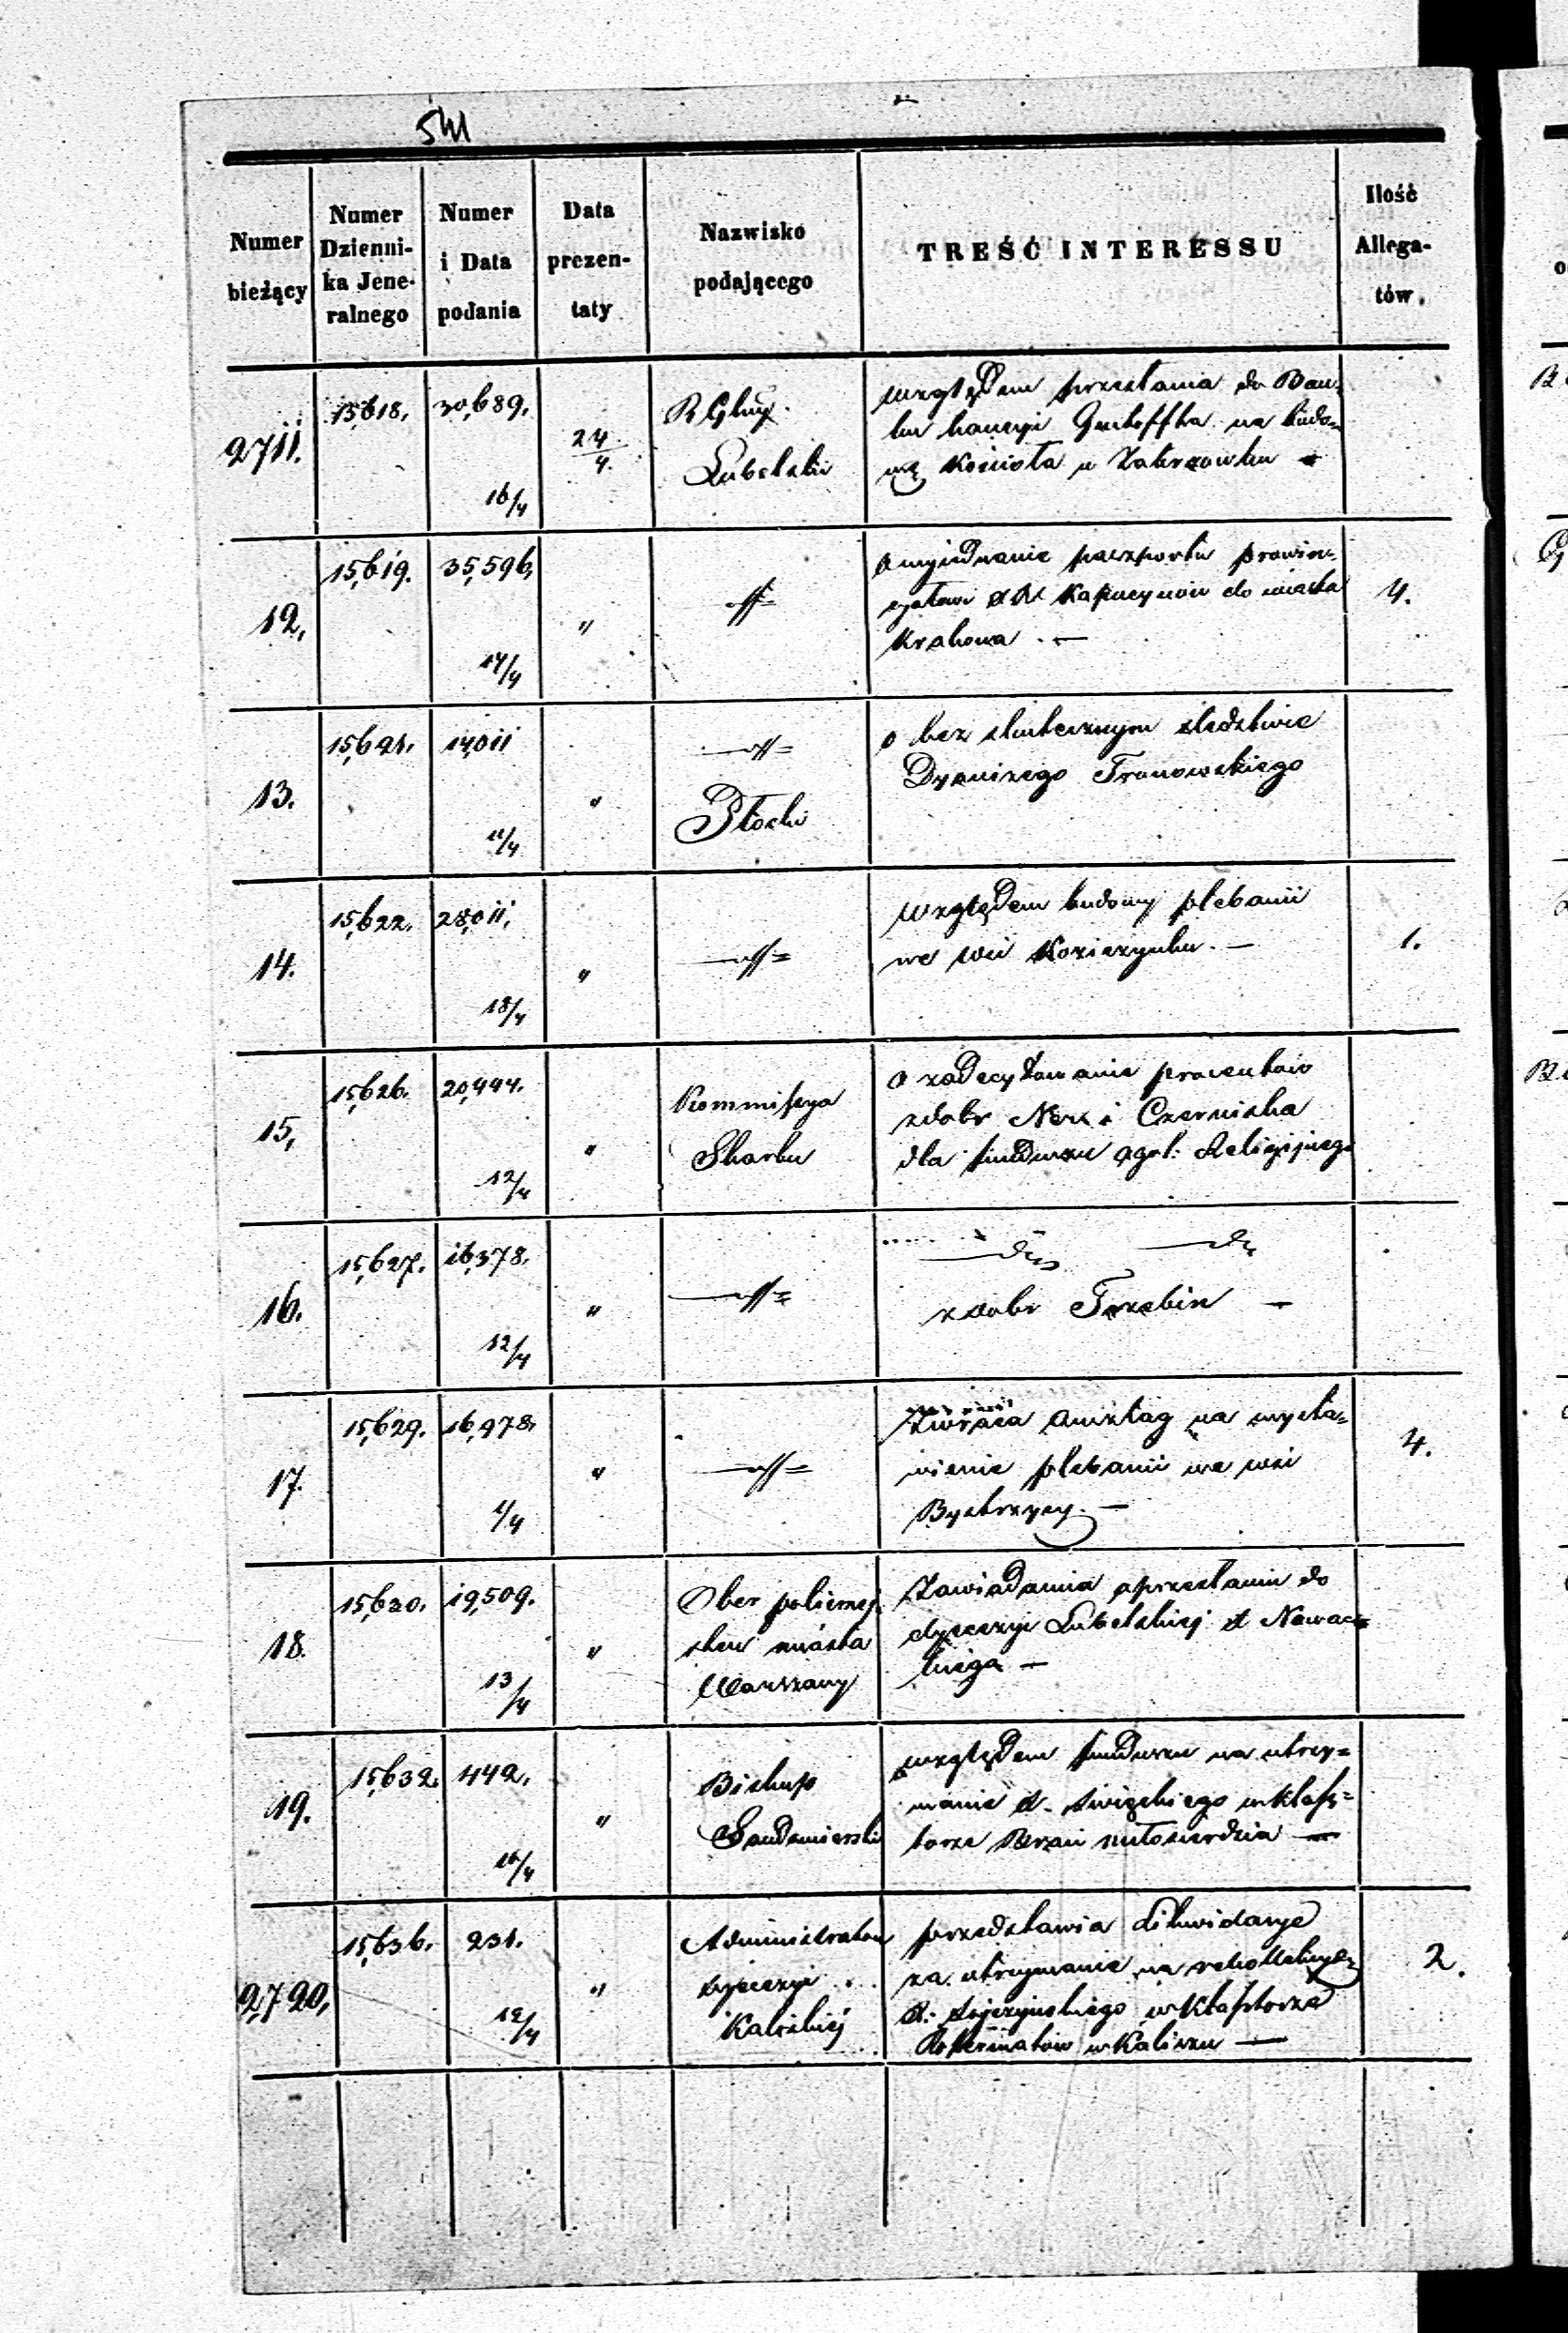 541
Numer bieżący
Numer Dzienni- ka Jene- ralnego
Numer i Data podania
Data prezen- taty
Nazwisko podającego
TREŚĆ INTERESSU
Ilość Allega- tów.
2711. 15,618. 30,689. 16/4 24/4.
R Glny.
Lubelski
względem przesłania do Ban=
ku kaucyi na budo=
wę Kościoła w Zakrzówku —
12, 15,619. 35,596, 14/4 "
o wyjednanie paszportu prowin=
cyałowi XX Kapucynów do miasta
Krakowa . —
4.
13. 15,621. 14,011 11/4 "
Płocki
o bez skutecznym śledztwie
Tranowskiego
14. 15,622. 28,011, 18/4 "
względem budowy plebanii
we wsi Koziczynku. —
1.
15, 15,626. 20,444. 12/4 "
Kommissya
Skarbu
o zadecydowanie procentów
z dobr Ner i Czerniska
dla funduszu ogol: Religijnego
16. 15,627. 16,378. 12/4 "
z dobr Trzebin —
17. 15,629. 16,978. 1/4 "
Zwraca anszlag na wysta=
wienie plebanii we wsi
Bystrzycy. —
4.
18. 15,630. 19,509. 13/4 "
Ober policmaj
ster miasta
Warszawy
Zawiadamia o przesłaniu do
dyecezyi Lubelskiej X Nowac=
kiego —
19. 15,632. 442. 16/4 "
Biskup
Sandomierski
względem funduszu na utrzy=
manie X. Święckiego w klasz=
torze Braci miłosierdzia —
2,720, 15,636. 231. 12/4 "
Administrator
dyecezyi
Kaliskiej
przedstawia Likwidacye
za utrzymanie na rekollekcyach
X. w Klasztorze
Reformatów w Kaliszu —
2.